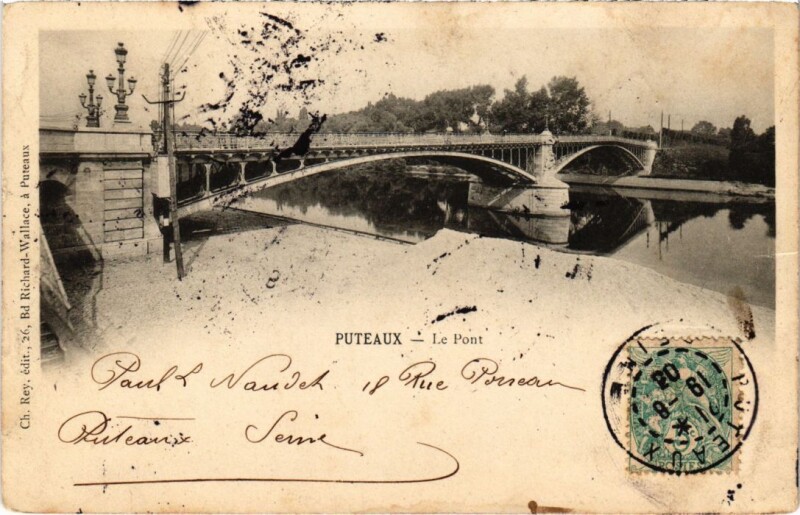 Ch. Rey, édit., 26, Bd Richard-Wallace, à Puteaux
PUTEAUX — Le Pont
Paul L Naudet 18 Rue
Puteaux Seine
PUTEAUX
19 - 8
03
POSTES